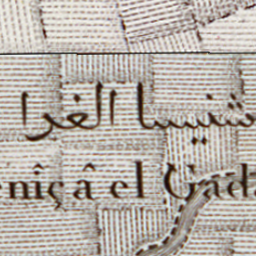 شنيسا الغرا
eniçâ el Gada